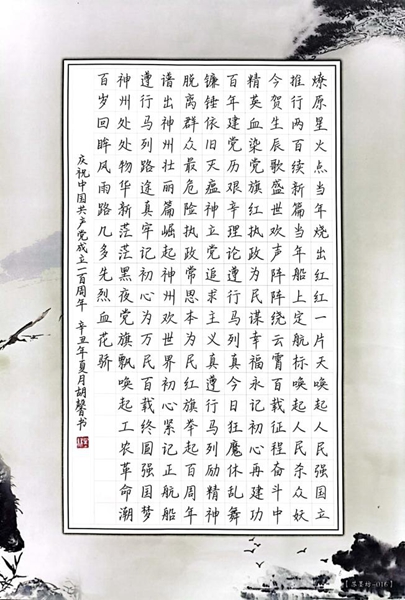 燎原星火点当年烧出红红一片天唤起人民强国立
推行两百续新篇当年船上定航标唤起人民杀众妖
今贺生辰歌盛世欢声阵阵绕云霄百载征程奋斗中
精英血染党旗红执政为民谋幸福永记初心再建功
百年建党历艰辛理论遵行马列真今日狂魔休乱舞
镰锤依旧灭瘟神立党追求主义真遵行马列励精神
脱离群众最危险执政常思本为民旗举起百周年
谱出神州壮丽篇崛起神州欢世界初心紧记正航船
遵行马列路途真牢记初心为万民百载终圆强国梦
神州处处物华新茫茫黑夜党旗飘唤起工农革命潮
百岁回眸风雨路几多先烈血花骄
庆祝中国共产党成立一百周年 辛丑年夏月胡馨书
-016】